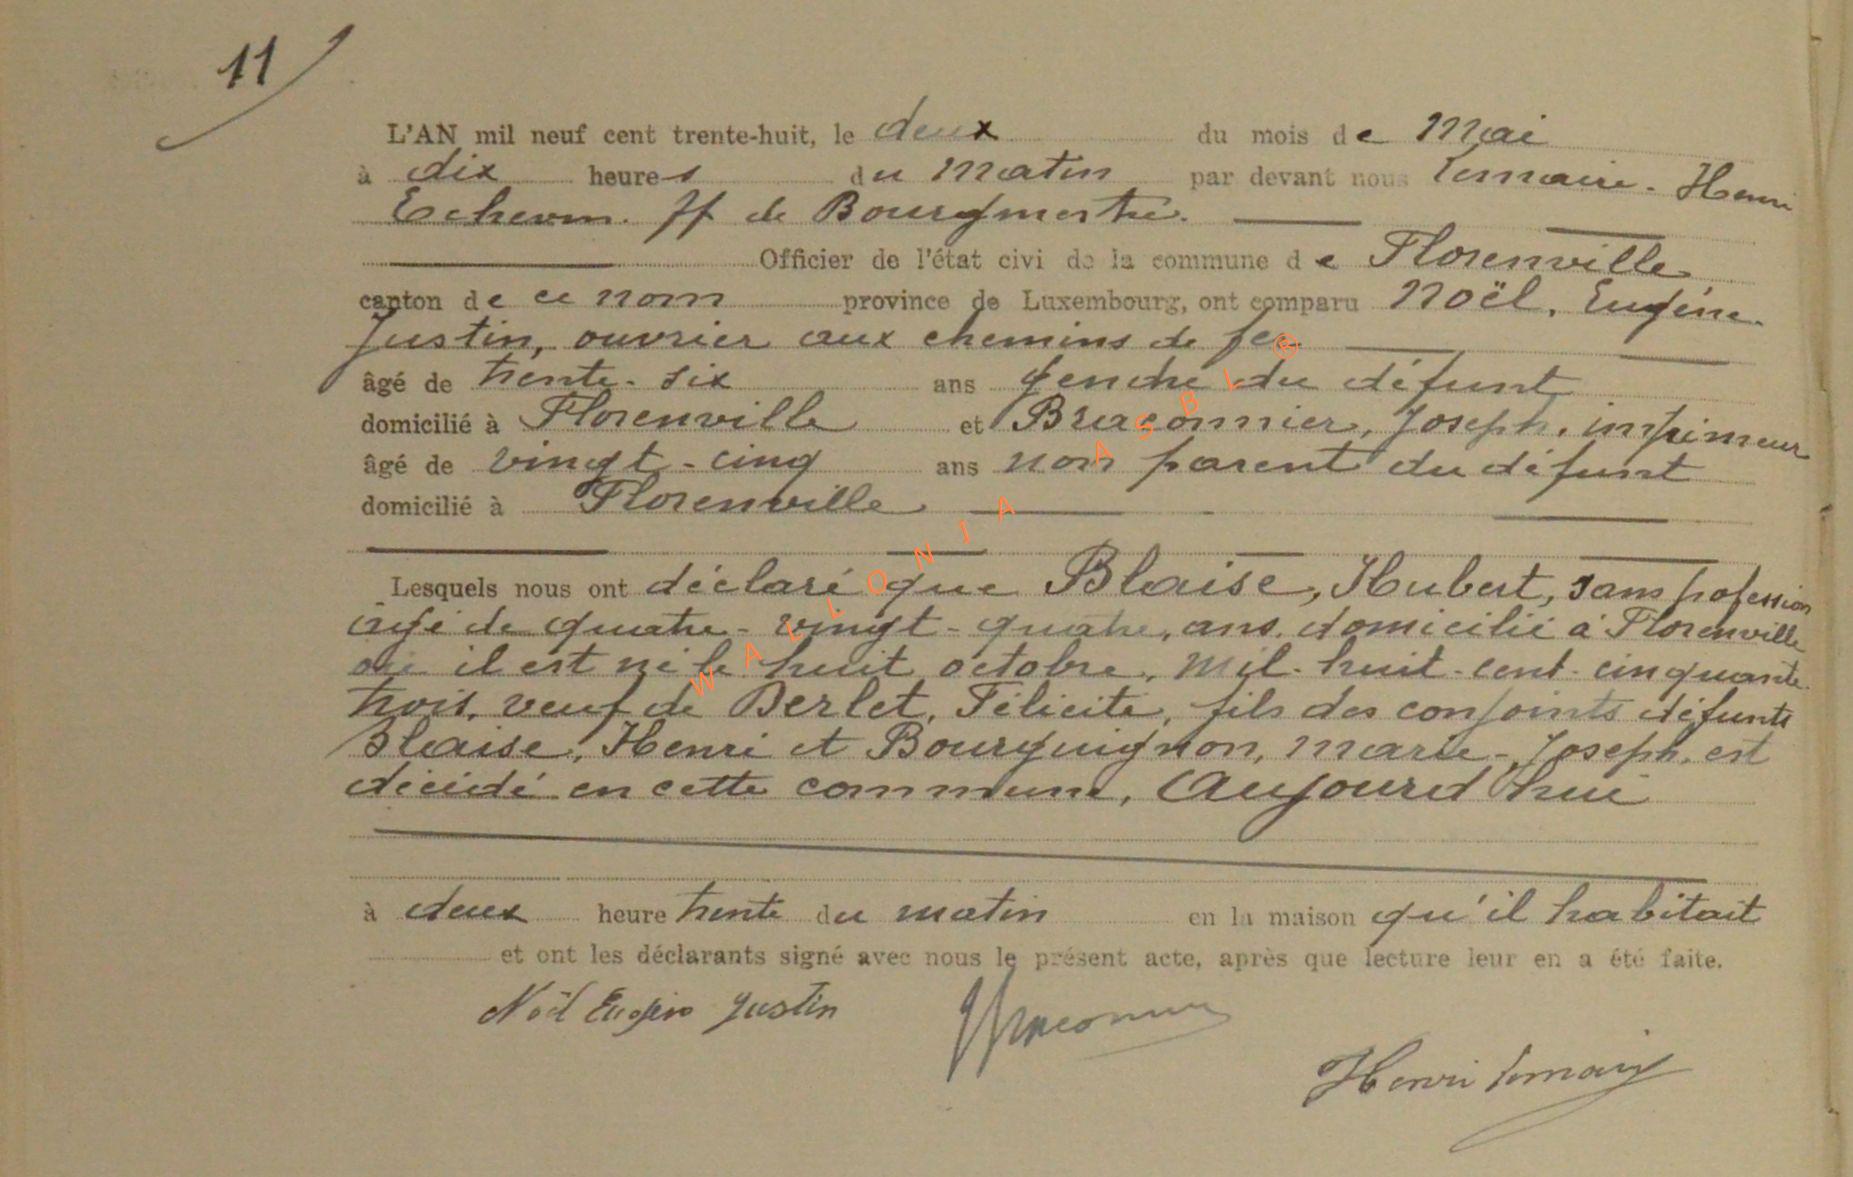 11
L'AN mil neuf cent trente-huit, le deux du mois de Mai
à dix heures du Matin par devant nous Lemaire. Henri
Echevin. ff de Bourgmestre.
Officier de l'état civi de la commune de Florenville
canton de ce nom province de Luxembourg, ont comparu Noël, Eugène.
Justin, ouvrier aux chemins de fer.
âgé de trente-six ans gendre du défunt
domicilié à Florenville et Braconnier, Joseph, imprimeur
âgé de vingt-cinq ans non parent du défunt
domicilié à Florenville
Lesquels nous ont déclaré que Blaise, Hubert, sans profession
âgé de quatre-vingt-quatre, ans. domicilié à Florenville
où il est né le huit octobre, mil-huit-cent-cinquante
trois, veuf de Berlet, Félicité, fils des conjoints défunts
Blaise, Henri et Bourguignon, Marie-Joseph, est
décédé en cette commune, Aujourd'hui
à deux heure trente du matin en la maison qu'il habitait
et ont les déclarants signé avec nous le présent acte, après que lecture leur en a été faite.
Noël Eugène Justin
JBraconnier
Henri Lemaire
WALLONIA ASBL ®